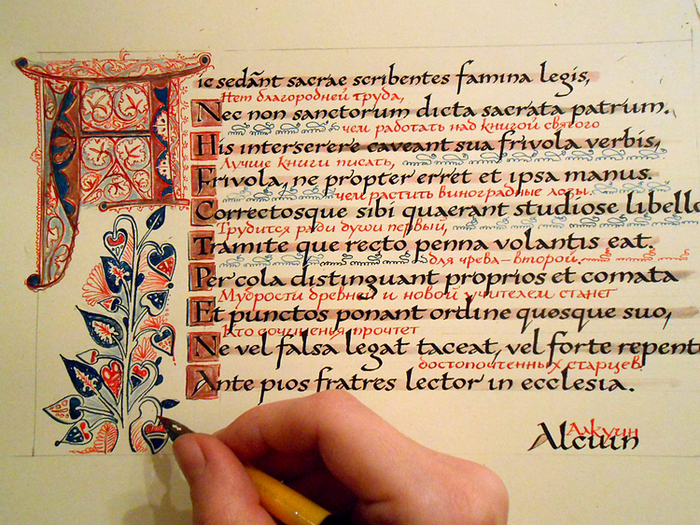 Hic sedãnt sacrae scribentes famina legis,
Нет благородней труда,
Nec non sanctorum dicta sacrata patrum.
чем работать над книгой святого
His interserere caveant sua frivola verbis,
Лучше книги писать,
Frivola, ne propter erret et ipsa manus.
чем растить виноградные лозы.
Correctosque sibi quaerant studiose libello
Трудится ради души первый,
Tramite que recto penna volantis eat.
для чрева–второй.
Per cola distinguant proprios et comata
Мудрости древней и новой учителем станет
Et punctos ponant ordine quosque suo,
Кто сочинения прочтет
Ne vel falsa legat taceat, vel forte repent
достопочтенных старцев.
Ante pios fratres lector in ecclesia.
Алкуин
Alcuin